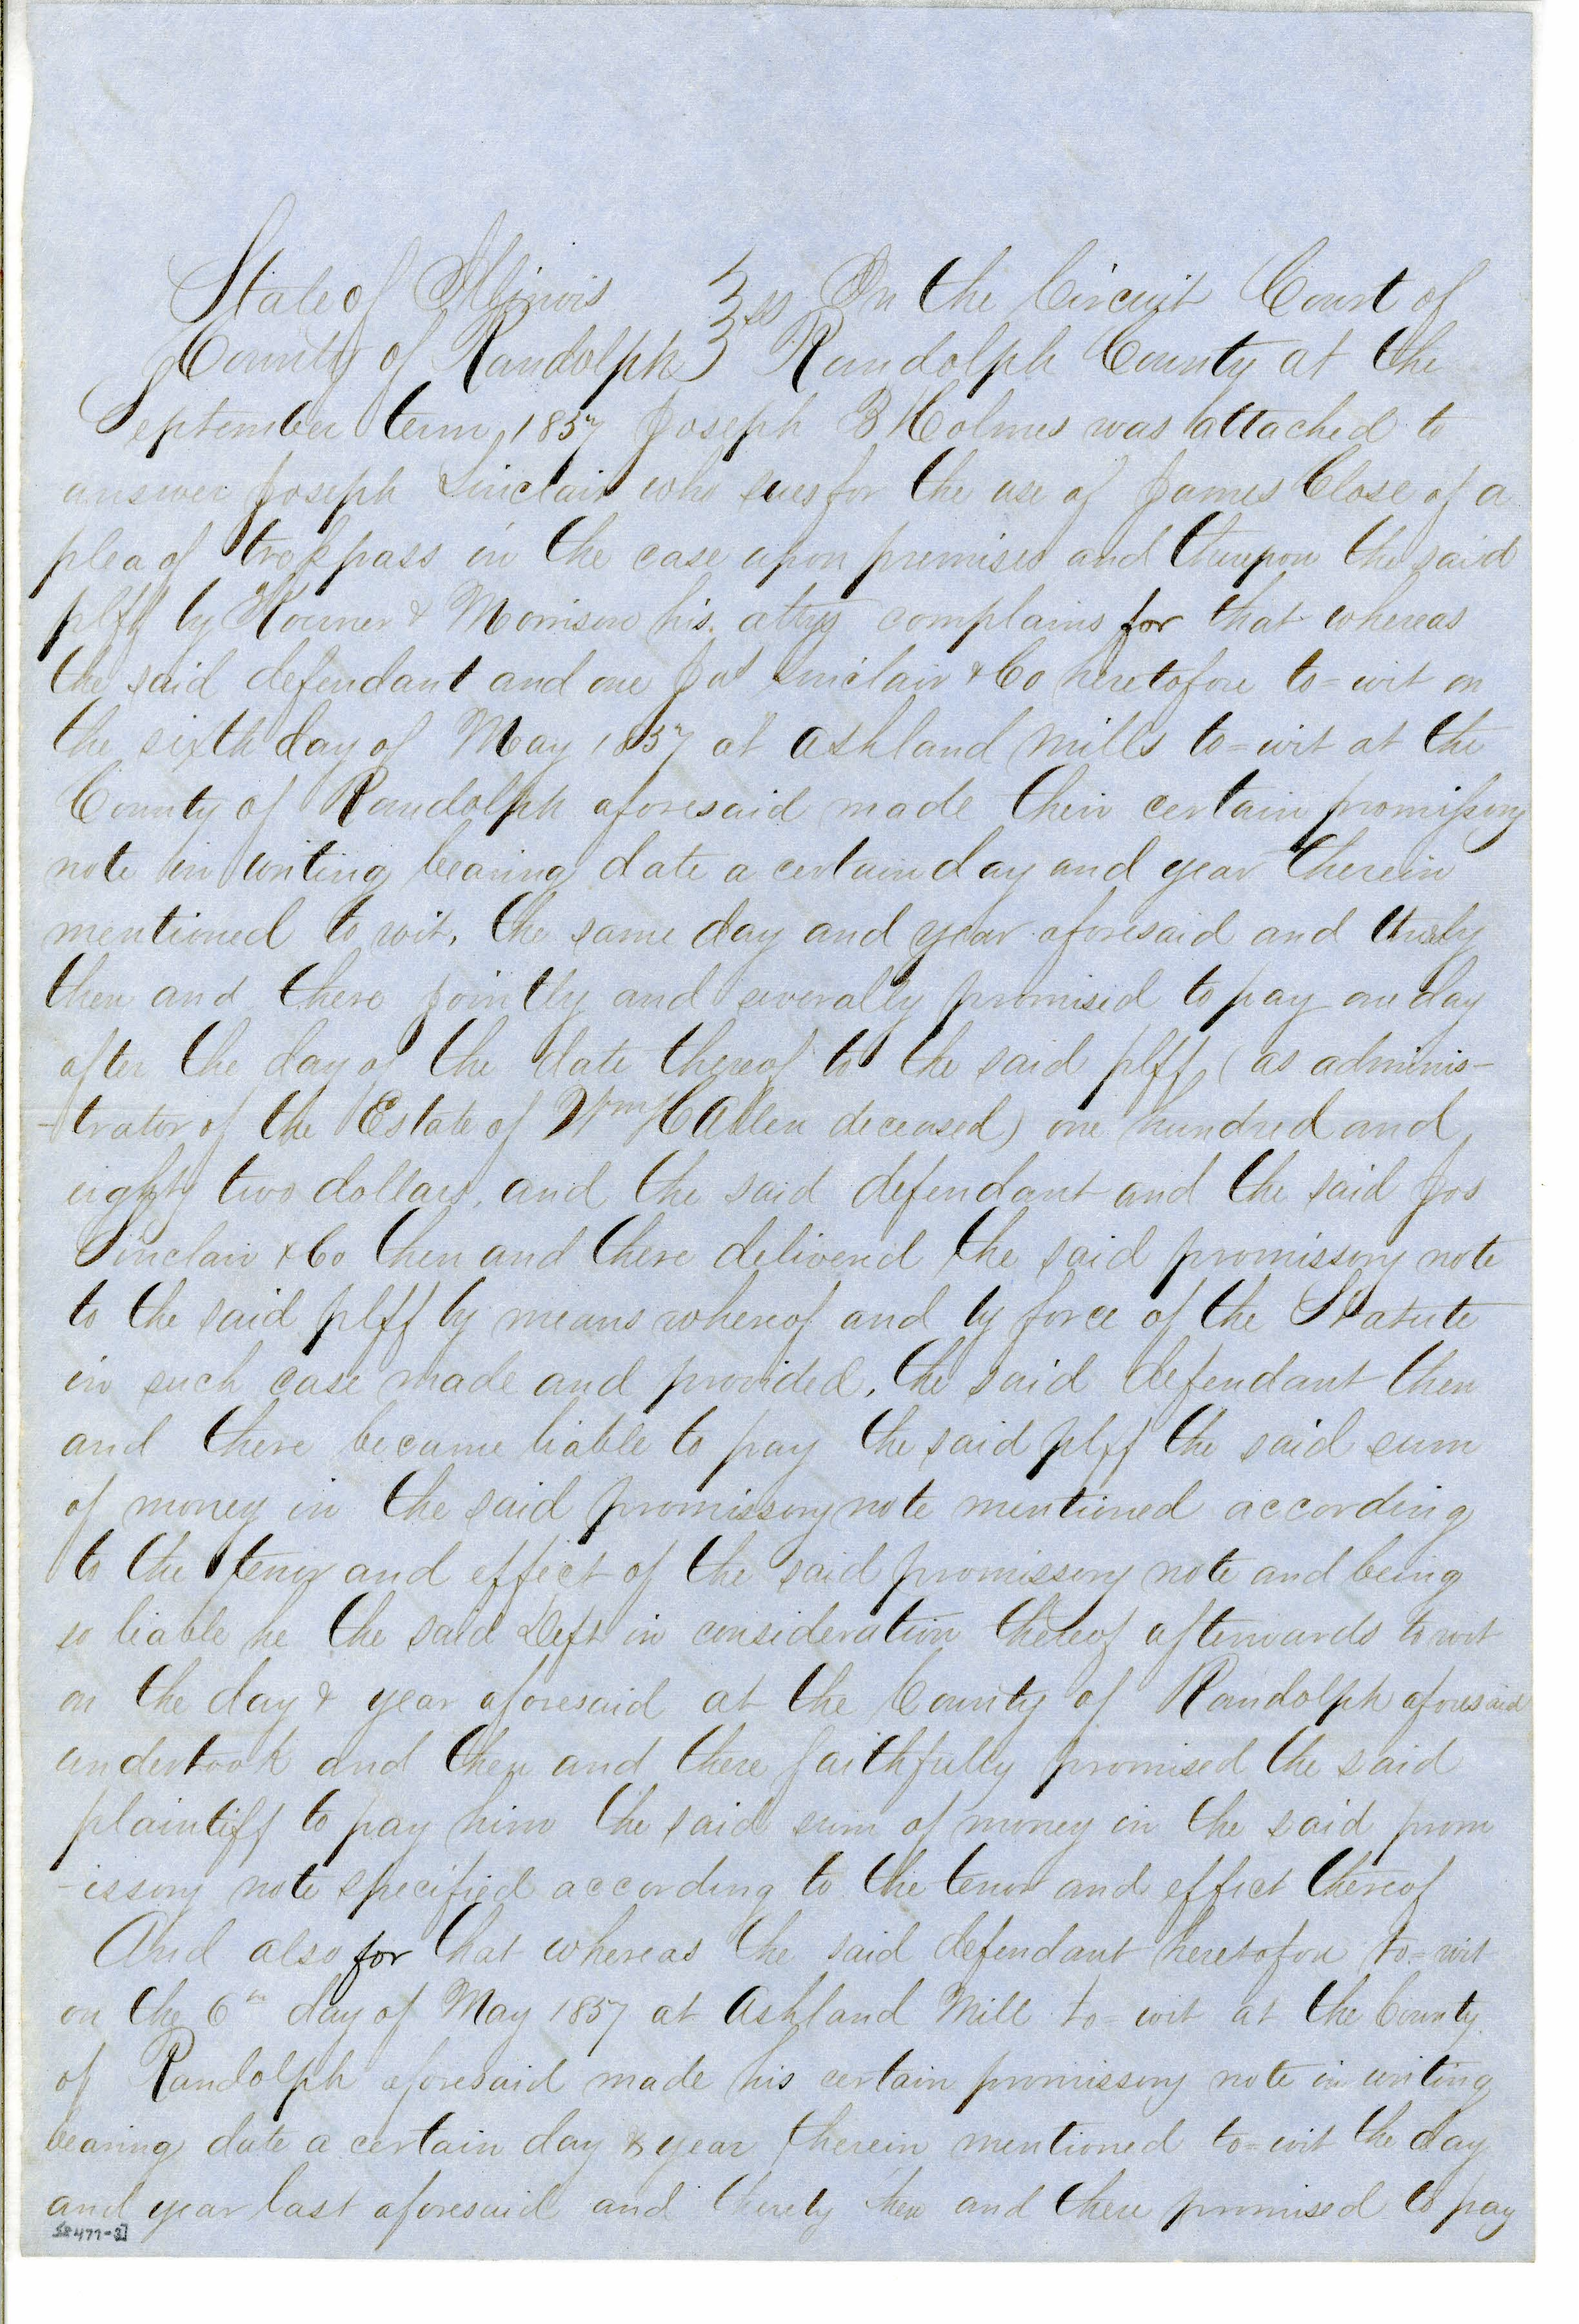 State of Illinois } ss In the Circuit Court of
County of Randolph } Randolph County at the
September term, 1857 Joseph B Holmes was attached to
answer Joseph Sinclair who sues for the use of James Close of a
plea of trespass in the case upon premises and thereupon the said
plff by & Morrison his attys complains for that whereas
the said defendant and one Jos Sinclair & Co heretofore to=wit on
the sixth day of May 1857 at Ashland Mills to=wit at the
County of Randolph aforesaid made their certain promissory
note in writing bearing date a certain day and year therein
mentioned to wit, the same day and year aforesaid and thereby
then and there jointly and severally promised to pay one day
after the day of the date thereof to the said plff, (as adminis-
-trator of the Estate of Wm H Allen deceased) one hundred and
eighty two dollars, and the said defendant and the said Jos
Sinclair & Co then and there delivered the said promissory note
to the said plff by means whereof and by force of the Statute
in such case made and provided, the said defendant then
and there became liable to pay the said plff the said sum
of money in the said promissory note mentioned according
to the tenor and effect of the said promissory note and being
so liable he the said Deft in consideration thereof afterwards to wit
on the day & year aforesaid at the County of Randolph aforesaid
undertook and then and there faithfully promised the said
plaintiff to pay him the said sum of money in the said prom
-issory note specified according to the tenor and effect thereof
And also for that whereas the said defendant heretofore to=wit
on the 6th day of May 1857 at Ashland Mill to=wit at the County
of Randolph aforesaid made his certain promissory note in writing
bearing date a certain day & year therein mentioned to=wit the day
and year last aforesaid and thereby then and there promised to pay